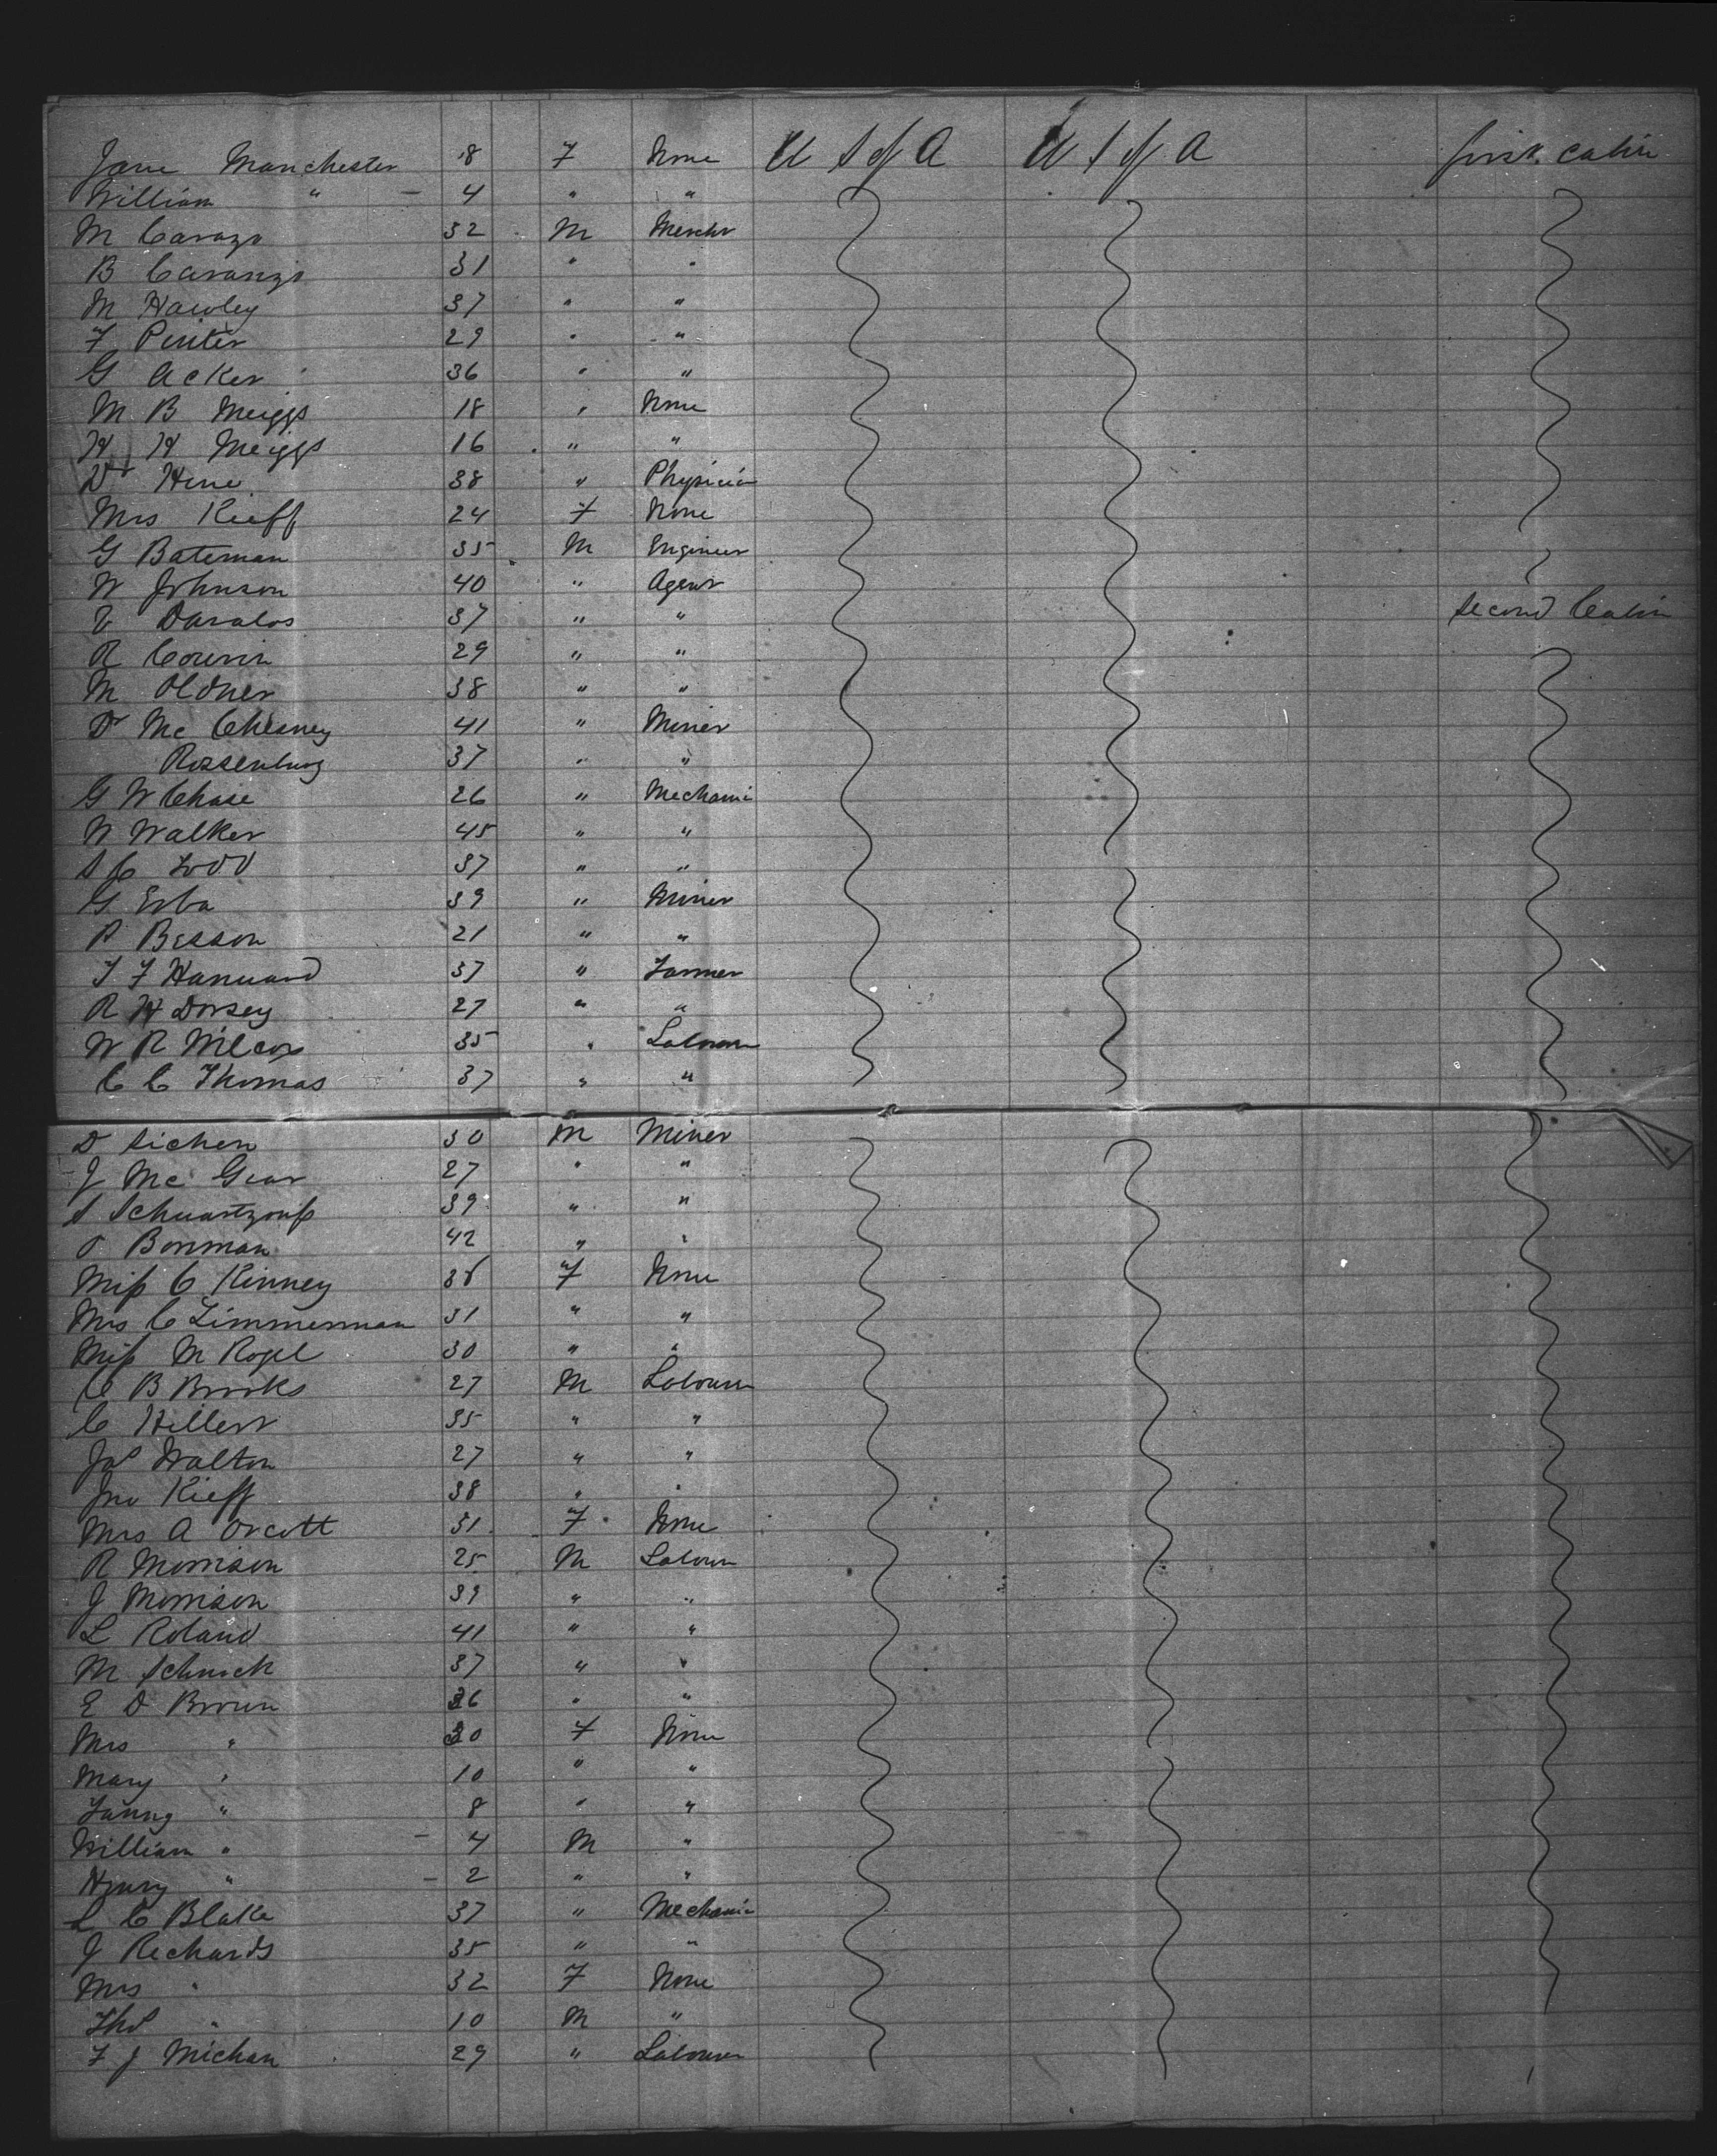 Jane Manchester 18 F None U S of A U S of A first cabin
William " - 4 " "
M Carazo 32 M Mercht
B Caranzo 31 " "
M Hawley 37 " "
F Pinter 29 " "
G Acker 36 " "
M B Meiggs 18 " None
H H Meiggs 16 " "
Dr Hine 38 " Physician
Mrs Kieff 24 F None
G Bateman 35 M Engineer
W Johnson 40 " Agent
Davalos 37 " " second Cabin
R Couvin 29 " "
M Oldner 38 " "
Dr Mc Chesney 41 " Miner
Rossenburg 37 " "
G W Chase 26 " Mechanic
W Walker 45 " "
S C Todd 37 " "
G Erba 39 " Miner
P Besson 21 " "
T F Hanward 37 " Farmer
R H Dorsey 27 " "
W R Wilcox 35 " Labourer
C C Thomas 37 " "
D Sichen 30 M Miner
J Mc Gear 27 " "
S 39 " "
O Bonman 42 " "
Miss C Kinney 38 F None
Mrs C Zimmerman 31 " "
Miss M Rogel 30 " "
C B Brooks 27 M Labourer
C Hillert 35 " "
Jas Walton 27 " "
Jno Kieff 38 " "
Mrs A Orcott 31 F None
R Morrison 25 M Labour
J Morrison 39 " "
L Roland 41 " "
M Schnick 37 " "
E D Brown 36 " "
Mrs " 30 F None
Mary " 10 " "
Fanny " 8 " "
William " - 4 M "
Henry " - 2 " "
L C Blake 37 " Mechanic
J Richards 35 " "
Mrs " 32 F None
Thos " 10 M "
F J Michan 29 " Labourer